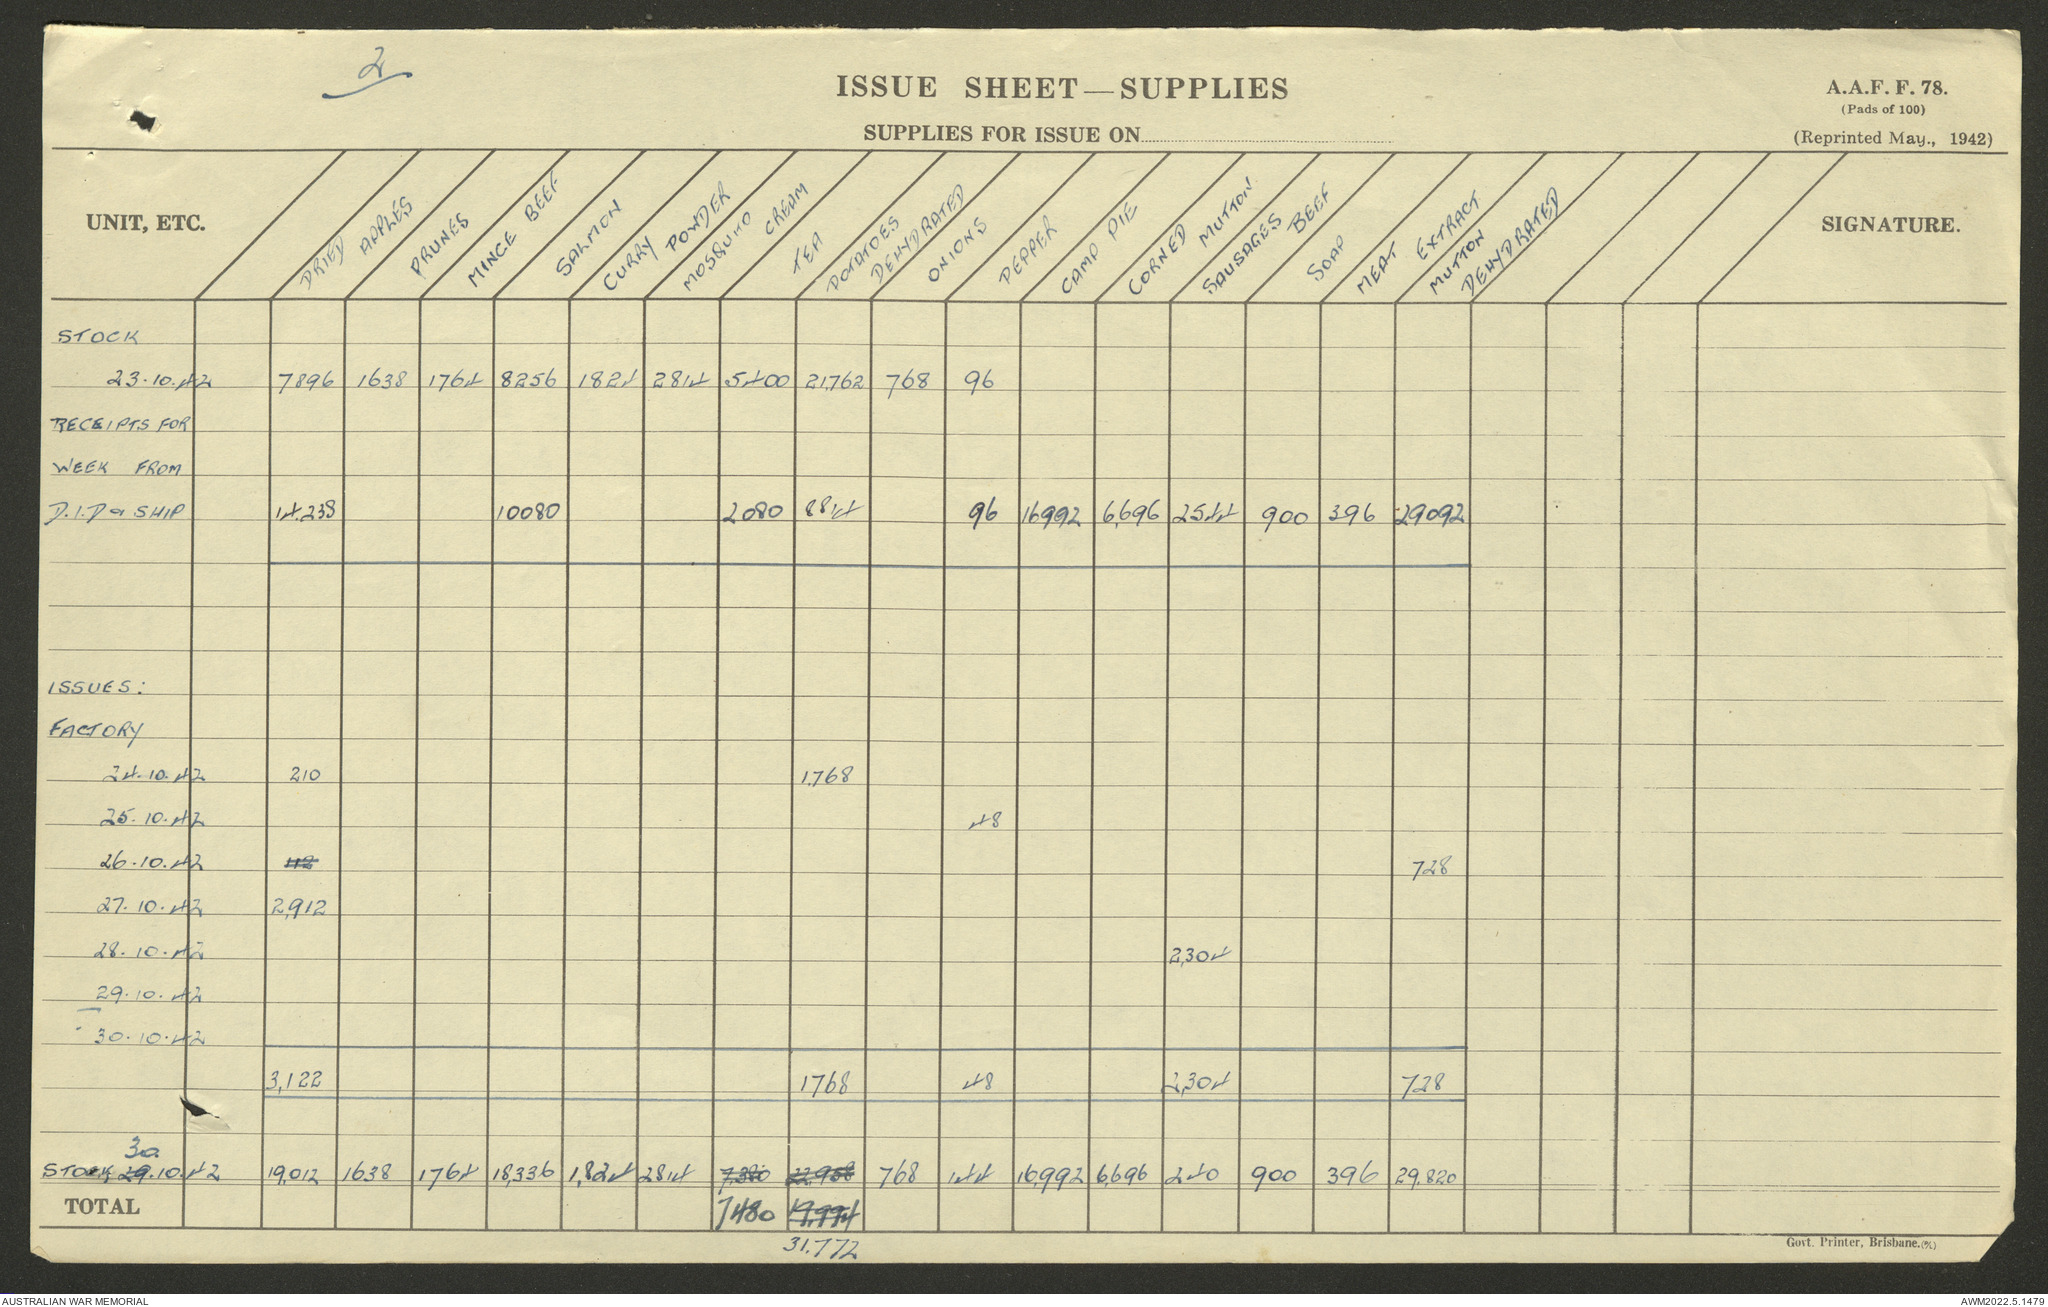 2
ISSUE SHEET—SUPPLIES
A.A.F. F. 78.
(Pads of 100)
SUPPLIES FOR ISSUE ON
(Reprinted May., 1942)
UNIT, ETC. DRIED APPLES PRUNES MINCE BEEF SALMON CURRY POWDER MOSQUITO CREAM TEA POTATOES DEHYDRATED ONIONS PEPPER CAMP PIE CORNED MUTTON SAUSAGES BEEF SOAP MEAT EXTRACT MUTTON DEHYDRATED SIGNATURE.
STOCK
23.10.42 7896 1638 1764 8256 1824 2814 5400 21,762 768 96
RECEIPTS FOR
WEEK FROM
D.I.D & SHIP 14,238 10080 2080 8814 96 16992 6,696 2544 900 396 29092
ISSUES:
FACTORY
24.10.42 210 1,768
25.10.42 48
26.10.42 112 728
27.10.42 2,912
28.10.42 2,304
29.10.42
30.10.42
3,122 1768 48 2,304 728
30.
STOCK 29.10.42 19,012 1638 1764 18,336 1,824 2814 7,380 22,958 768 144 16,992 6,696 240 900 396 29,820
TOTAL 7480 19,994
31,772
Govt. Printer, Brisbane.
AUSTRALIAN WAR MEMORIAL
AWM2022.5.1479